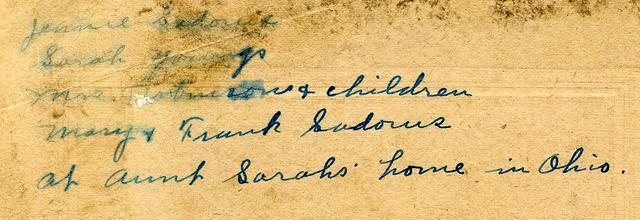 Jennie Sadows
Sarah Youngs
Mrs. & children
Mary & Frank Sadows
at aunt Sarahs' home in Ohio.